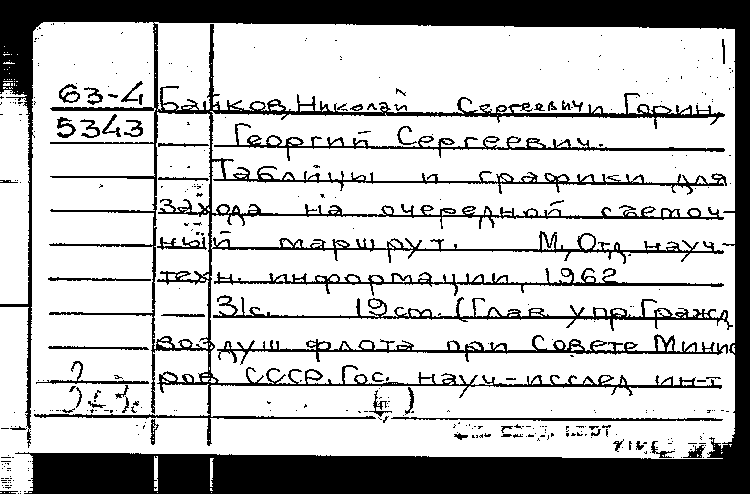 63-4 Байков, Николай Сергеевич и Горин,
5343 Георгий Сергеевич.
Таблицы и графики для
захода на очередной съемоч-
ный маршрут. М., Отд. науч.-
техн. информации, 1962
31с. 19см. (Глав упр. Гражд
воздуш флота при Совете Минис
ров СССР. Гос. науч.-исслед ин-т
)